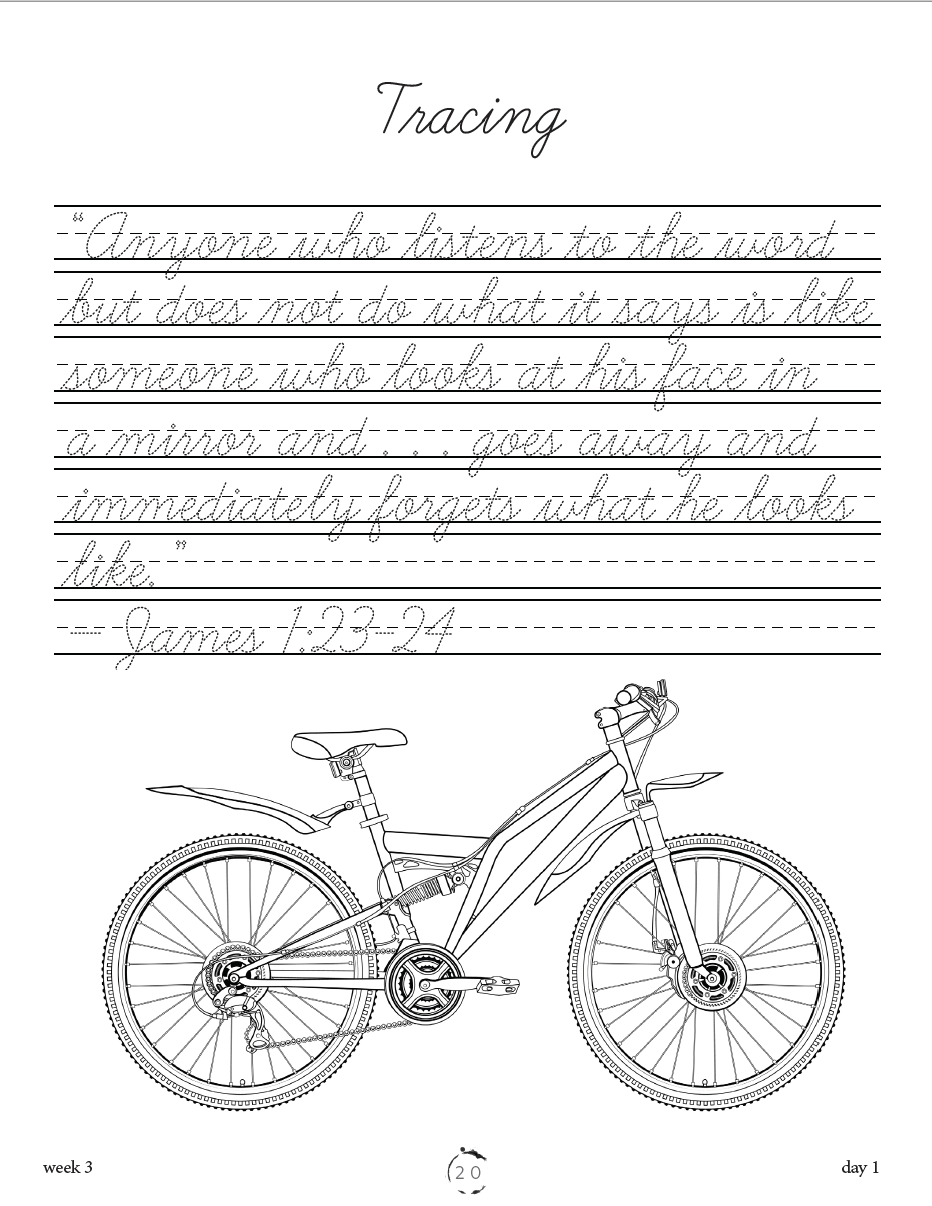 Tracing
“Anyone who listens to the word
but does not do what it says is like
someone who looks at his face in
a mirror and . . . goes away and
immediately forgets what he looks
like.”
— James 1:23–24
week 3
20
day 1